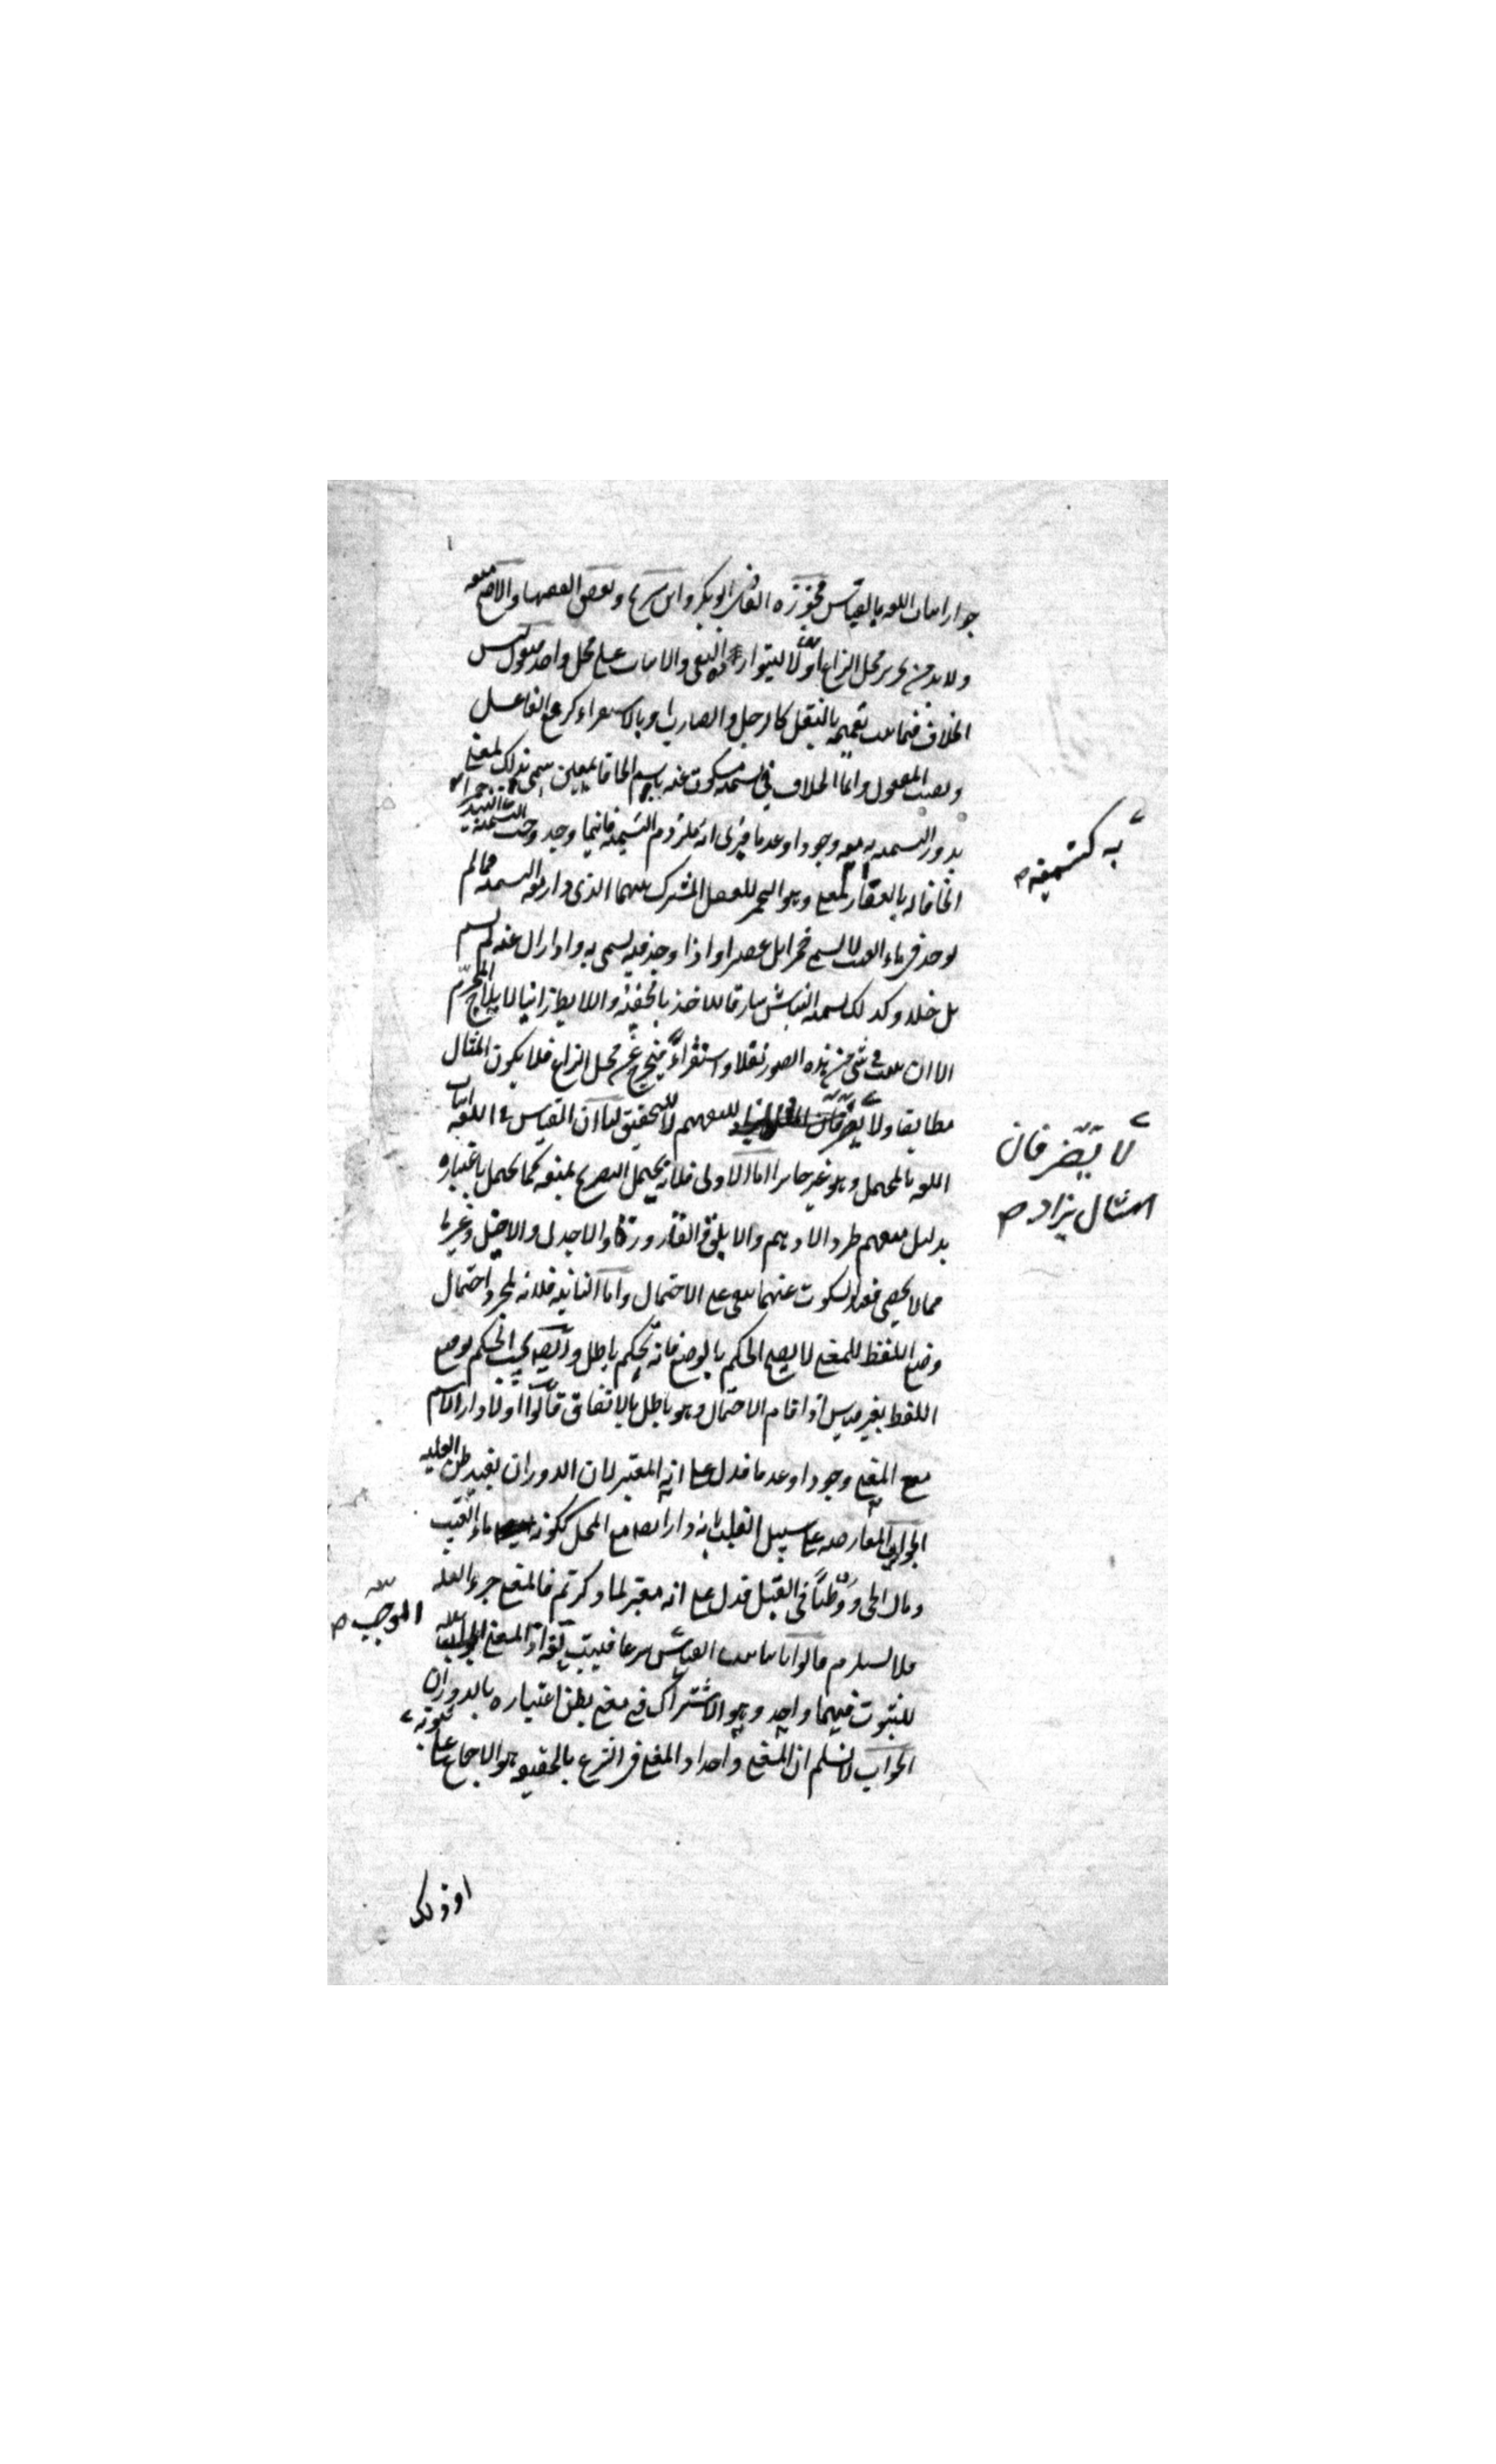 جواز اثبات اللغة بالقياس فجوزه القاضى ابو بكر وابن سريج وبعض الفقهاء والاصح منعه
ولا بد من تحرير محل النزاع اولا ليتوارد النفى والاثبات على محل واحد فنقول ليس
الخلاف فيما ثبت تعميمه بالنقل كالرجل والضارب او بالاستقراء كرفع الفاعل
ونصب المفعول وانما الخلاف فى تسمية مسكوت عنه باسم الحاقا بمعين سمى بذلك لمعنى
يدور التسمية به معه وجودا وعدما فيرى انه ملزوم التسمية فاينما وجد وجب التسمية
الحاقا له بالعقار لمعنى وهو التخمير للعقل المشترك بينهما الذى دار معه التسمية فما لم
يوجد فى ماء العنب لا يسمى خمرا بل عصيرا واذا وجد فيه يسمى به واذا زال عنه لم يسم
بل خلا وكذلك تسمية النباش سارقا للاخذ بالخفية واللايط زانيا لايلاج المحرم
الا ان يثبت فى شئ من هذه الصور نقلا واستقراء فيخرج عن محل النزاع فلا يكون المثال
مطابقا ولا يضر فان للتفهيم لا للتحقيق لنا ان القياس فى اللغة اثبات
اللغة بالمحتمل وهو غير جايز اما الاولى فلانه يحتمل التصريح بمنعه كما يحتمل باعتباره
بدليل منعهم طرد الادهم والابلق والقارورة والاجدل والاخيل وغيرها
مما لا يحصى فعند السكوت عنهما يبقى على الاحتمال واما الثانية فلانه بمجرد احتمال
وضع اللفظ للمعنى لا يصح الحكم بالوضع فانه تحكم باطل وايضا يجب الحكم بوضع
اللفظ بغير قياس اذا قام الاحتمال وهو باطل بالاتفاق قالوا اولا دار الاسم
مع المعنى وجودا وعدما فدل على انه المعتبر لان الدوران يفيد ظن العلية
الجواب المعارضة على سبيل القلب بانه دار ايضا مع المحل ككونه ماء العنب
ومال الحى ووطئا فى القبل فدل على انه معتبر لما ذكرتم فالمعنى جزء العلة
فلا يستلزم قالوا ثانيا ثبت القياس شرعا فيثبت لغة اذ المعنى
للثبوت فيهما واحد وهو الاشتراك فى معنى يظن اعتباره بالدوران
الجواب لا نسلم ان المعنى واحد اذ المعنى فى الشرع بالحقيقة هو الاجماع على ثبوته
به كتسمية
لا يضر فان
المثال يراد
الموجب
او ذلك